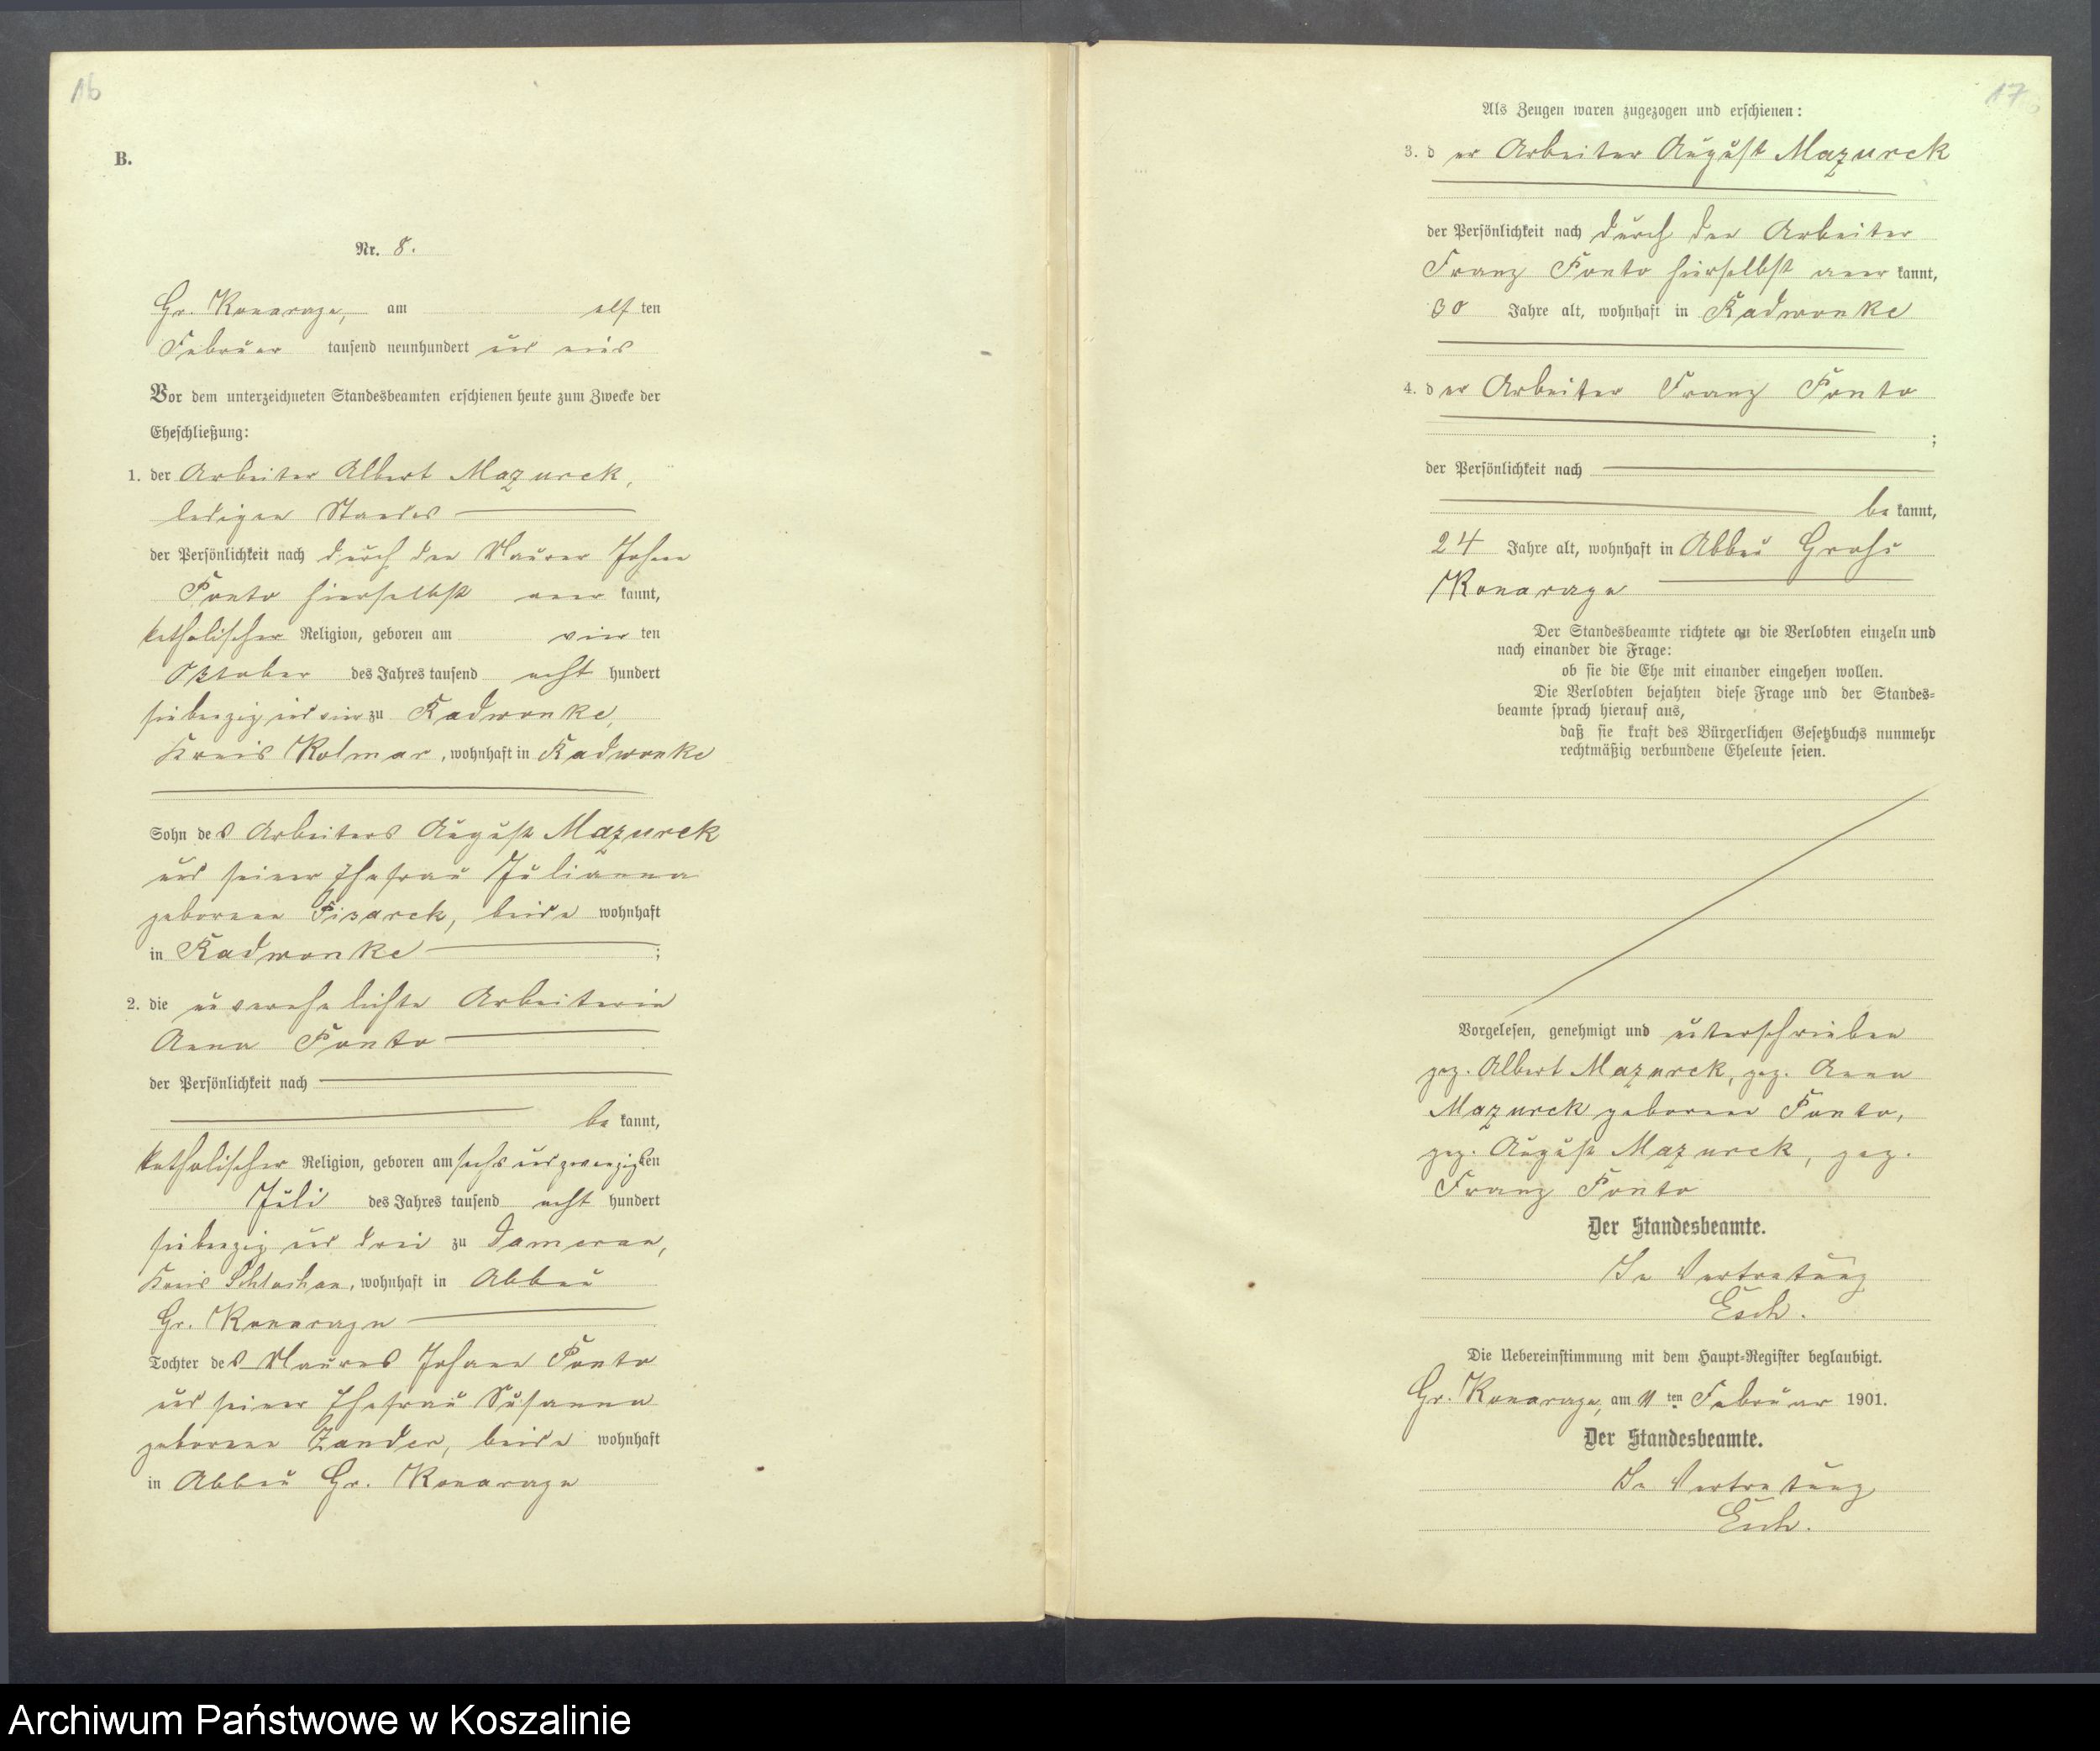 16
B.
Nr. 8.
Gr. Konarzyn, am elf ten
Februar tausend neunhundert und eins
Vor dem unterzeichneten Standesbeamten erschienen heute zum Zwecke der
Eheschließung:
1. der Arbeiter Albert Mazurek,
ledigen Standes
der Persönlichkeit nach durch den Maurer Johann
Ponto hierselbst aner kannt,
katholischer Religion, geboren am vier ten
Oktober des Jahres tausend acht hundert
siebenzig und vier zu Radwonke,
Kreis Kolmar, wohnhaft in Radwonke
Sohn des Arbeiters August Mazurek
und seiner Ehefrau Julianna
geborenen Pisarek, beide wohnhaft
in Radwonke ;
2. die unverehelichte Arbeiterin
Anna Ponto
der Persönlichkeit nach
be kannt,
katholischer Religion, geboren am sechs und zwanzigsten
Juli des Jahres tausend acht hundert
siebenzig und drei zu Dameran,
Kreis Schlochau, wohnhaft in Abbau
Gr. Konarzyn
Tochter des Maurers Johann Ponto
und seiner Ehefrau Susanna
geborenen Zander, beide wohnhaft
in Abbau Gr. Konarzyn
17
Als Zeugen waren zugezogen und erschienen:
3. der Arbeiter August Mazurek
der Persönlichkeit nach durch den Arbeiter
Franz Ponto hierselbst aner kannt,
30 Jahre alt, wohnhaft in Radwonke
4. der Arbeiter Franz Ponto
;
der Persönlichkeit nach
be kannt,
24 Jahre alt, wohnhaft in Abbau Groß
Konarzyn
Der Standesbeamte richtete an die Verlobten einzeln und
nach einander die Frage:
ob sie die Ehe mit einander eingehen wollen.
Die Verlobten bejahten diese Frage und der Standes-
beamte sprach hierauf aus,
daß sie kraft des Bürgerlichen Gesetzbuchs nunmehr
rechtmäßig verbundene Eheleute seien.
Vorgelesen, genehmigt und unterschrieben
gez. Albert Mazurek, gez. Anna
Mazurek geborene Ponto,
gez. August Mazurek, gez.
Franz Ponto
Der Standesbeamte.
In Vertretung
Esch.
Die Uebereinstimmung mit dem Haupt-Register beglaubigt.
Gr. Konarzyn, am 11 ten Februar 1901.
Der Standesbeamte.
In Vertretung
Esch.
Archiwum Państwowe w Koszalinie